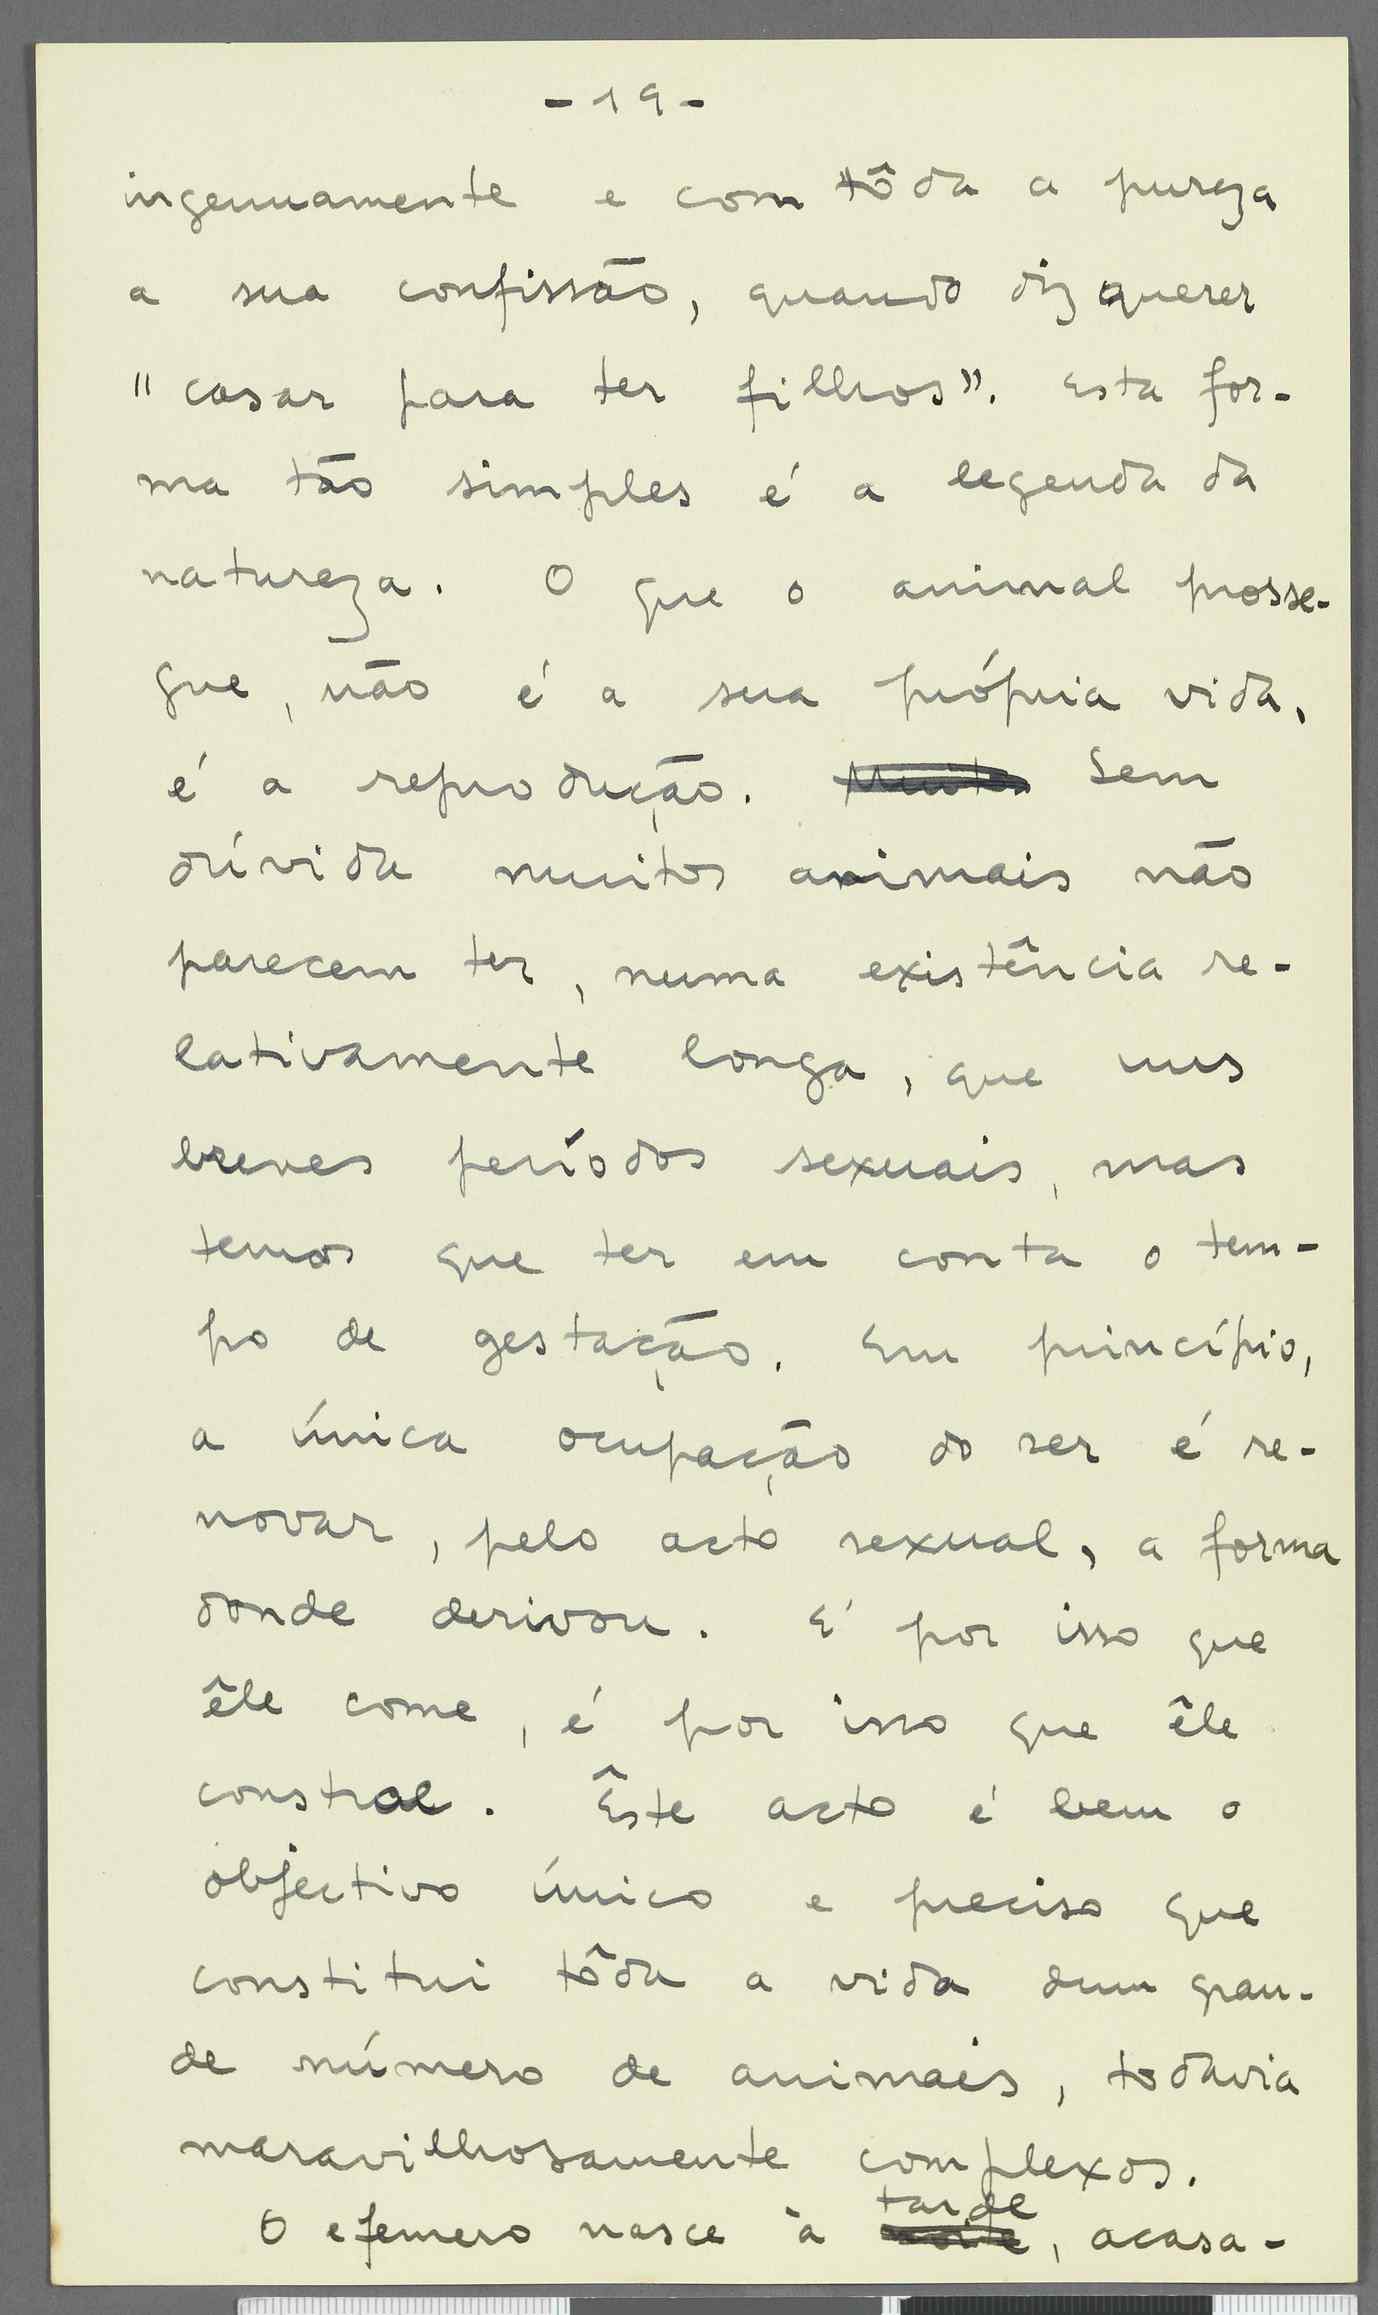 - 19 -
ingenuamente e com tôda a pureza
a sua confissão, quando diz querer
"casar para ter filhos". Esta for-
ma tão simples é a legenda da
natureza. O que o animal prosse-
gue, não é a sua própria vida,
é a reprodução. Muitos Sem
dúvida muitos animais não
parecem ter, numa existência re-
lativamente longa, que uns
breves períodos sexuais, mas
temos que ter em conta o tem-
po de gestação. Em princípio,
a única ocupação do ser é re-
novar, pelo acto sexual, a forma
donde derivou. É por isso que
êle come, é por isso que êle
constroe. Êste acto é bem o
objectivo único e preciso que
constitui tôda a vida dum gran-
de número de animais, todavia
maravilhosamente complexos.
tarde
O efemero nasce à noite, acasa-